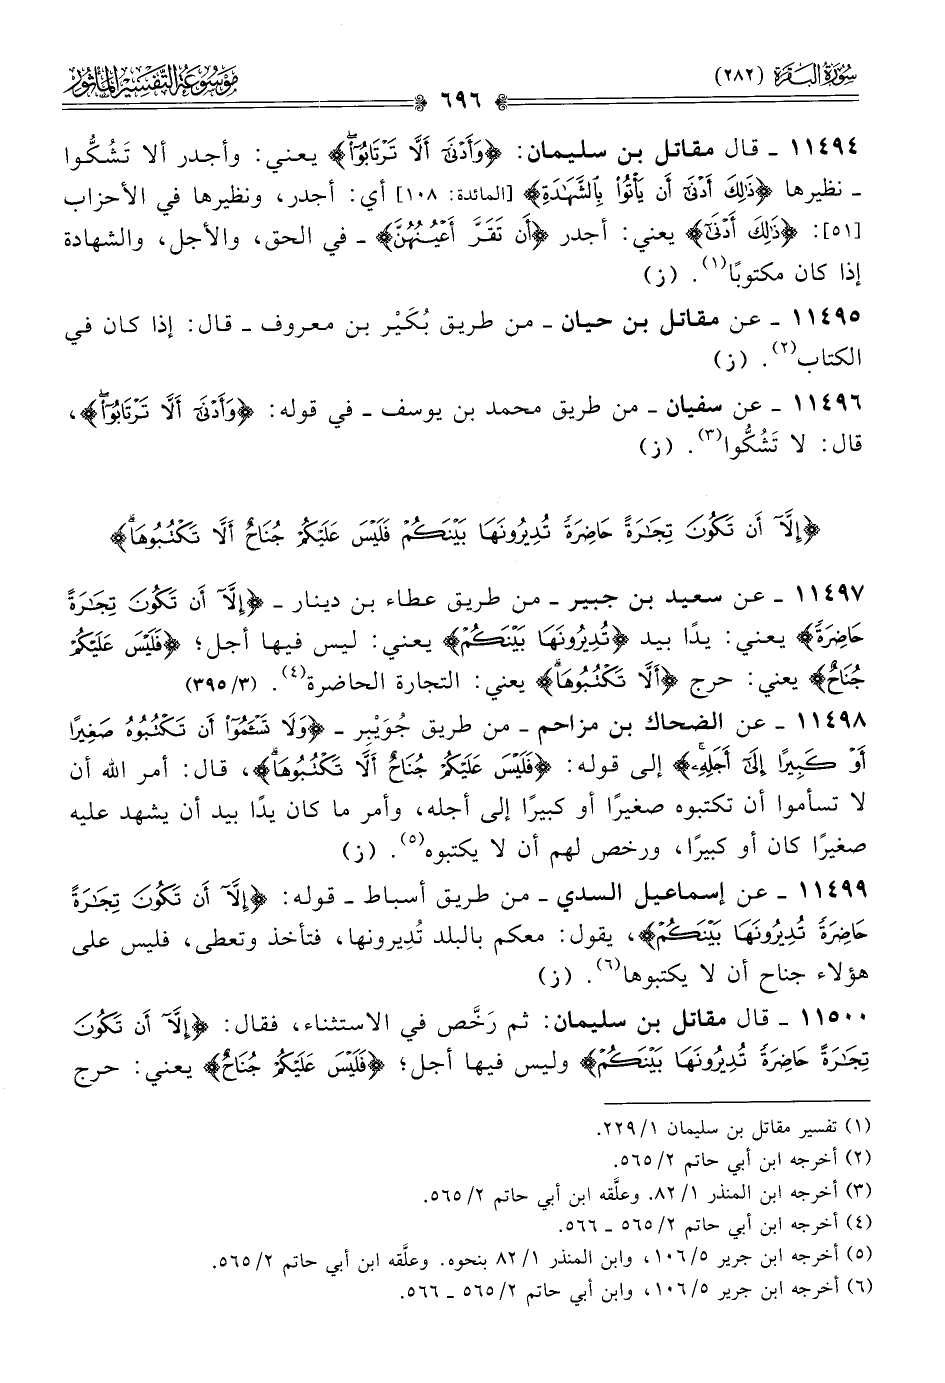 سُورَةُ البَقَرَةِ (٢٨٢)
مَوْسُوعَةُ التَّفْسِيرِ المَأْثُورِ
٦٩٦
١١٤٩٤ ـ قال مقاتل بن سليمان: ﴿وَأَدْنَىٰٓ أَلَّا تَرْتَابُوٓا۟ۖ﴾ يعني: وأجدر ألا تَشُكُّوا
ـ نظيرها ﴿ذَٰلِكَ أَدْنَىٰٓ أَن يَأْتُوا۟ بِٱلشَّهَٰدَةِ﴾ [المائدة: ١٠٨] أي: أجدر، ونظيرها في الأحزاب
[٥١]: ﴿ذَٰلِكَ أَدْنَىٰٓ﴾ يعني: أجدر ﴿أَن تَقَرَّ أَعْيُنُهُنَّ﴾ ـ في الحق، والأجل، والشهادة
إذا كان مكتوبًا(١). (ز)
١١٤٩٥ ـ عن مقاتل بن حيان ـ من طريق بُكَيْر بن معروف ـ قال: إذا كان في
الكتاب(٢). (ز)
١١٤٩٦ ـ عن سفيان ـ من طريق محمد بن يوسف ـ في قوله: ﴿وَأَدْنَىٰٓ أَلَّا تَرْتَابُوٓا۟ۖ﴾،
قال: لا تَشُكُّوا(٣). (ز)
﴿إِلَّآ أَن تَكُونَ تِجَٰرَةً حَاضِرَةً تُدِيرُونَهَا بَيْنَكُمْ فَلَيْسَ عَلَيْكُمْ جُنَاحٌ أَلَّا تَكْتُبُوهَاۗ﴾
١١٤٩٧ ـ عن سعيد بن جبير ـ من طريق عطاء بن دينار ـ ﴿إِلَّآ أَن تَكُونَ تِجَٰرَةً
حَاضِرَةً﴾ يعني: يدًا بيد ﴿تُدِيرُونَهَا بَيْنَكُمْ﴾ يعني: ليس فيها أجل؛ ﴿فَلَيْسَ عَلَيْكُمْ
جُنَاحٌ﴾ يعني: حرج ﴿أَلَّا تَكْتُبُوهَاۗ﴾ يعني: التجارة الحاضرة(٤). (٣/ ٣٩٥)
١١٤٩٨ ـ عن الضحاك بن مزاحم ـ من طريق جُوَيْبِر ـ ﴿وَلَا تَسْـَٔمُوٓا۟ أَن تَكْتُبُوهُ صَغِيرًا
أَوْ كَبِيرًا إِلَىٰٓ أَجَلِهِۦۚ﴾ إلى قوله: ﴿فَلَيْسَ عَلَيْكُمْ جُنَاحٌ أَلَّا تَكْتُبُوهَاۗ﴾، قال: أمر الله أن
لا تسأموا أن تكتبوه صغيرًا أو كبيرًا إلى أجله، وأمر ما كان يدًا بيد أن يشهد عليه
صغيرًا كان أو كبيرًا، ورخص لهم أن لا يكتبوه(٥). (ز)
١١٤٩٩ ـ عن إسماعيل السدي ـ من طريق أسباط ـ قوله: ﴿إِلَّآ أَن تَكُونَ تِجَٰرَةً
حَاضِرَةً تُدِيرُونَهَا بَيْنَكُمْ﴾، يقول: معكم بالبلد تُدِيرونها، فتأخذ وتعطى، فليس على
هؤلاء جناح أن لا يكتبوها(٦). (ز)
١١٥٠٠ ـ قال مقاتل بن سليمان: ثم رَخَّص في الاستثناء، فقال: ﴿إِلَّآ أَن تَكُونَ
تِجَٰرَةً حَاضِرَةً تُدِيرُونَهَا بَيْنَكُمْ﴾ وليس فيها أجل؛ ﴿فَلَيْسَ عَلَيْكُمْ جُنَاحٌ﴾ يعني: حرج
(١) تفسير مقاتل بن سليمان ١/ ٢٢٩.
(٢) أخرجه ابن أبي حاتم ٢/ ٥٦٥.
(٣) أخرجه ابن المنذر ١/ ٨٢. وعلَّقه ابن أبي حاتم ٢/ ٥٦٥.
(٤) أخرجه ابن أبي حاتم ٢/ ٥٦٥ ـ ٥٦٦.
(٥) أخرجه ابن جرير ٥/ ١٠٦، وابن المنذر ١/ ٨٢ بنحوه. وعلَّقه ابن أبي حاتم ٢/ ٥٦٥.
(٦) أخرجه ابن جرير ٥/ ١٠٦، وابن أبي حاتم ٢/ ٥٦٥ ـ ٥٦٦.